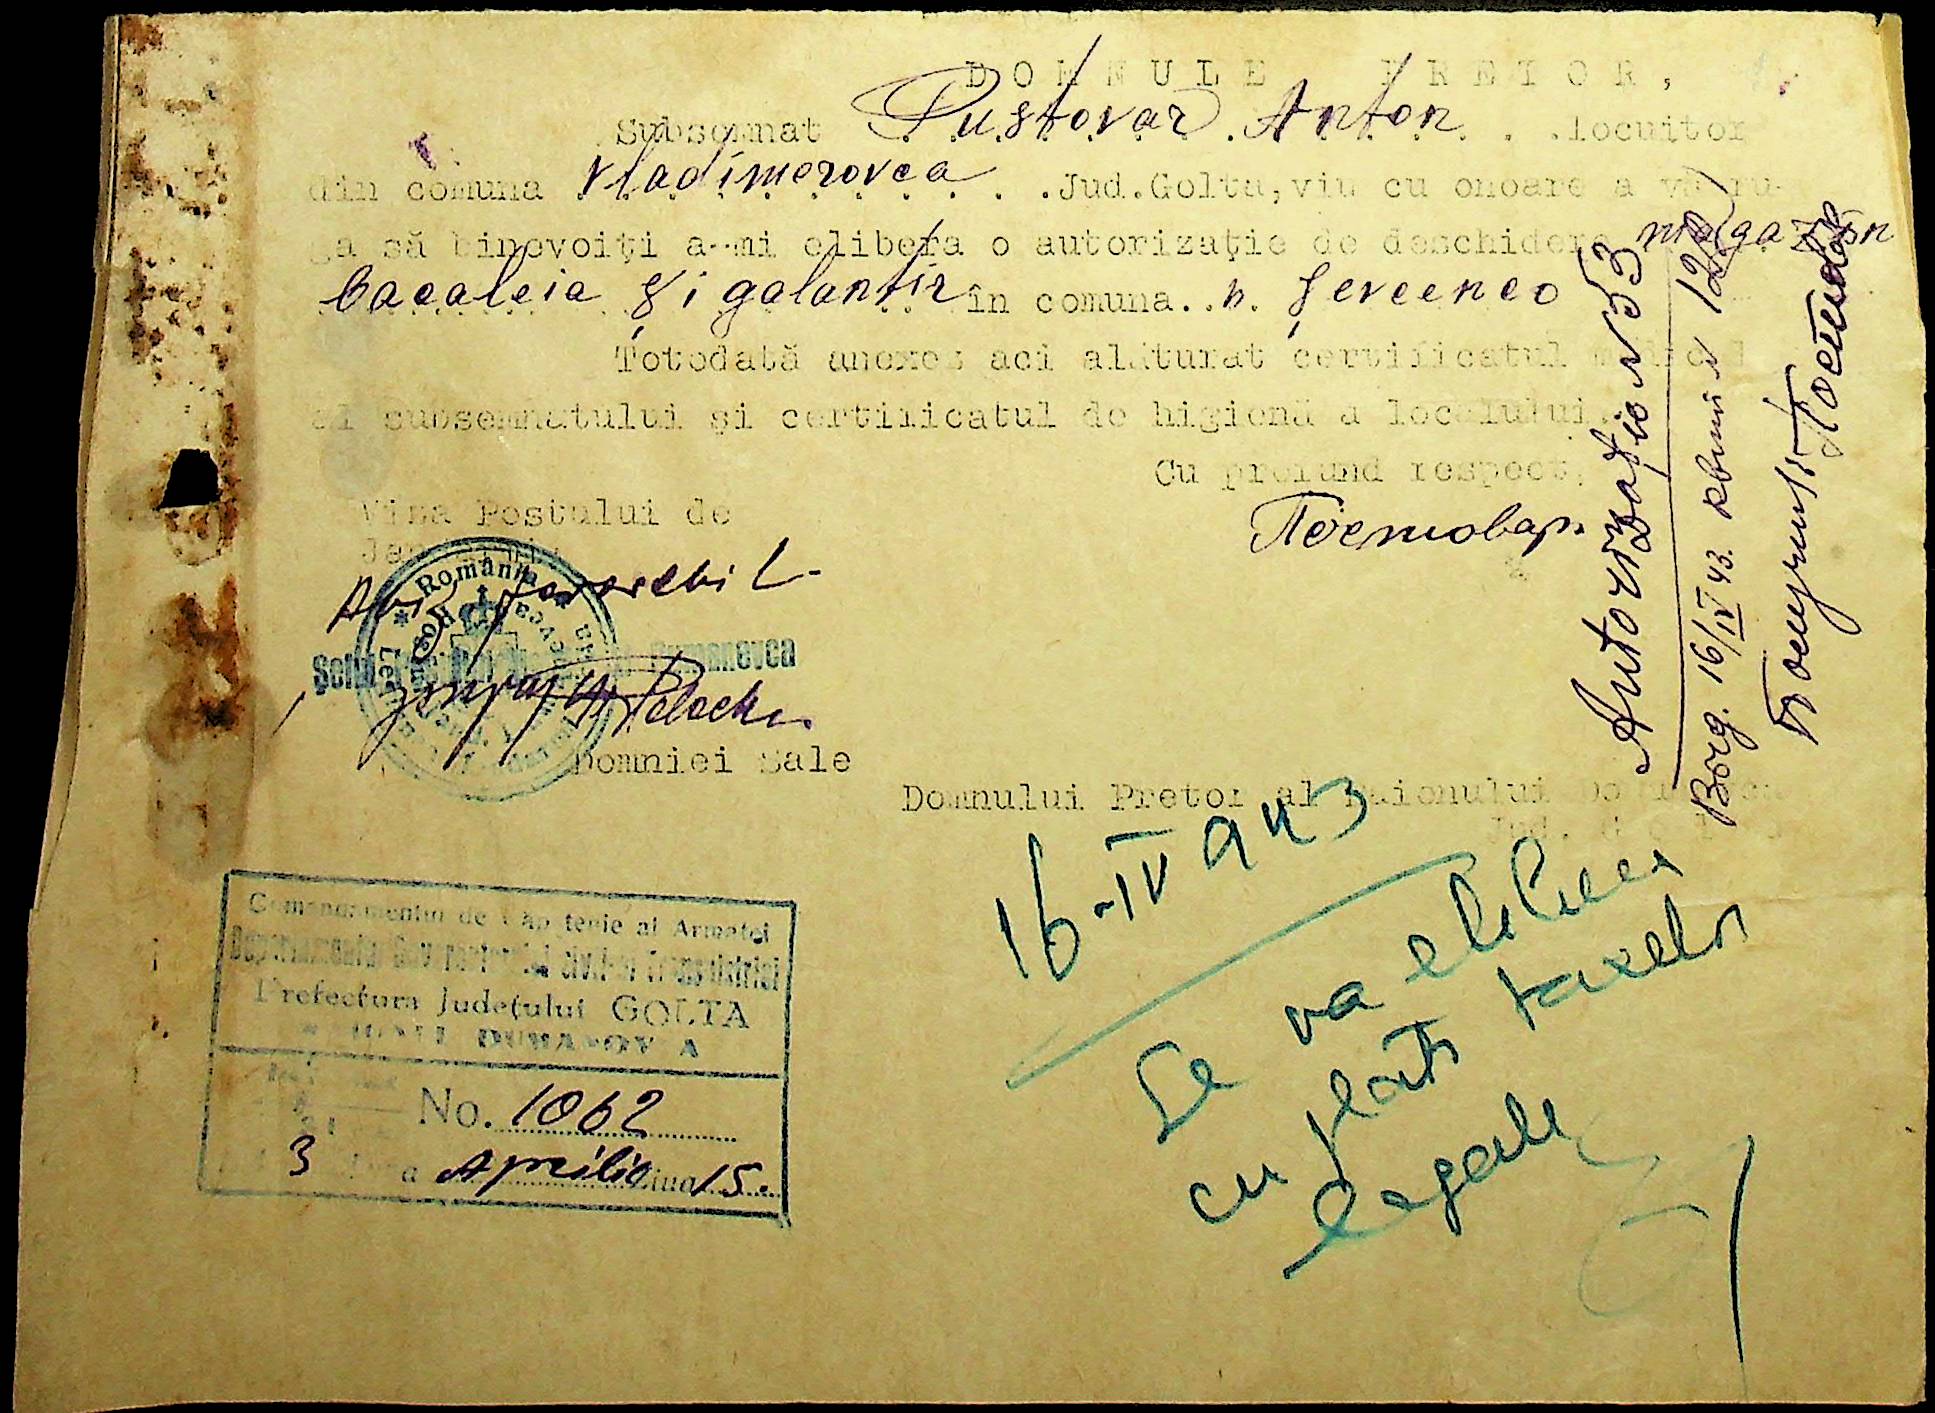 DOMNULE PRETOR,
Subsemnat Pustovar Anton locuitor
din comuna Vladimerovca Jud.Golta, viu cu onoare a vă ru-
ga să binevoiţi a-mi elibera o autorizaţie de deschidere magazin
bacaleia şi galantir în comuna n. Şevcenco
Totodată anexez aci alăturat certificatul medical
al subsemnatului şi certificatul de higienă a localului.
Cu profund respect,
Пустовар
Viza Postului de
Aviz favorabil
România
Şeful Romanovca
Domniei Sale
Domnului Pretor al Raionului
Jud.
Autorizaţio N 53
16/IV 43. квит N
получил
16-IV 943
Se va elibera
cu plata taxelor
legale
Comandamentul de Căpitenie al Armatei
Departamentul Guvernământul civil al Transnistriei
Prefectura Judeţului GOLTA
No. 1062
3 Aprilie Ziua 15.